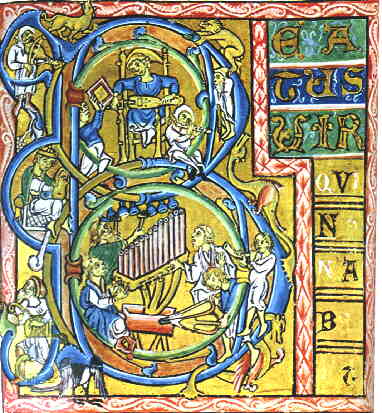 BEA
TUS
UIR
QVI
N
NA
B